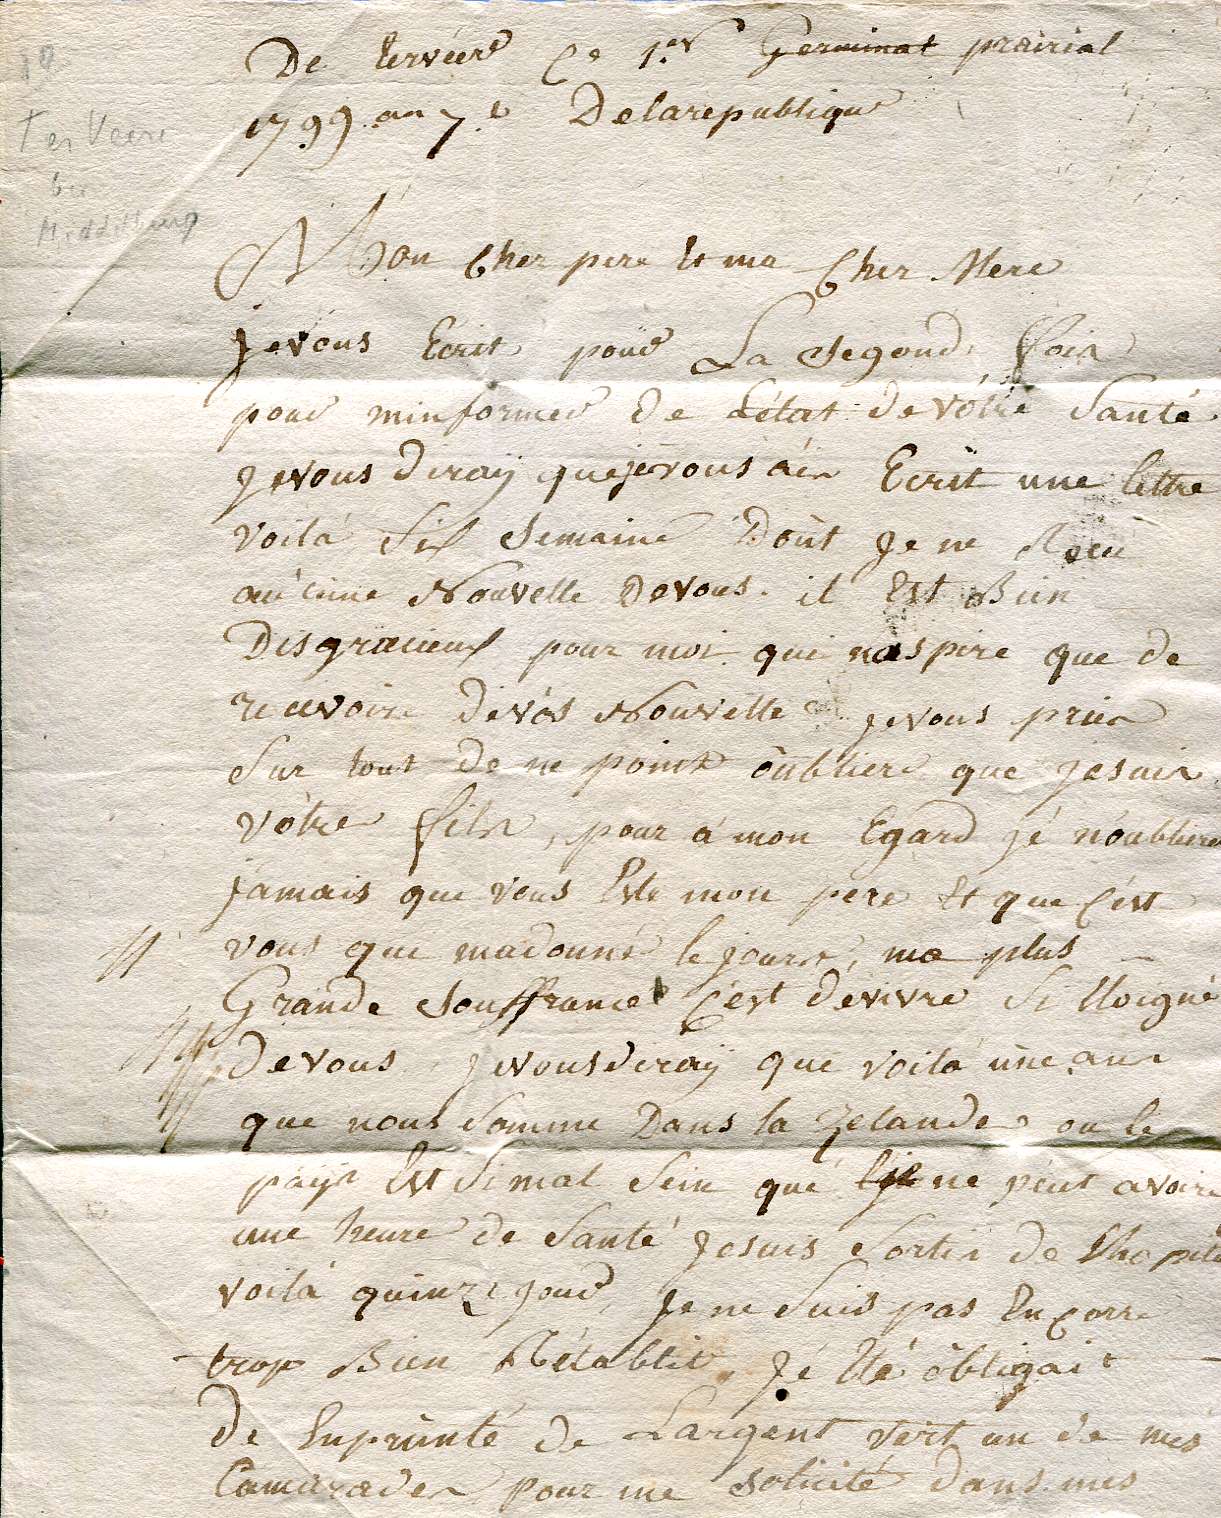 De terveere Ce 1.er Germinal prairial
1799 an 7.e De la republique
Ter Veere
bei
Middelburg
Mon Cher pere et ma Cher Mere
je vous Ecrit pour La segond fois
pour minformer de L'état de vôtre Santé
je vous diraÿ que je vous ais Ecrit une lettre
voila Six Semaine Dont je ne Reçu
aucune Nouvelle De vous. il Est Bien
Disgracieux pour moi qui naspire que de
recevoire de vós Nouvelle je vous pries
Sur tout de ne point oublier que je suis
vôtre fils, pour a mon Egard jé n'oublirai
jamais que vous Este mon pere Et que C'est
vous que madonné le jours, ma plus
Grande Souffrance C'est de vivre Si Eloigné
De vous je vous diraÿ que voila une ans
que nous Somme Dans la Zelande ou le
païs Est Si mal Sein que je ne peut avoire
une heure de Santé je suis Sortis de Lhopital
voila quinze jour, je ne Suis pas Encorre
trop Bien Rétablit, jé Eté obligait
de Enprunté de Largent vert un de mes
Camarades pour me solicité dans mes